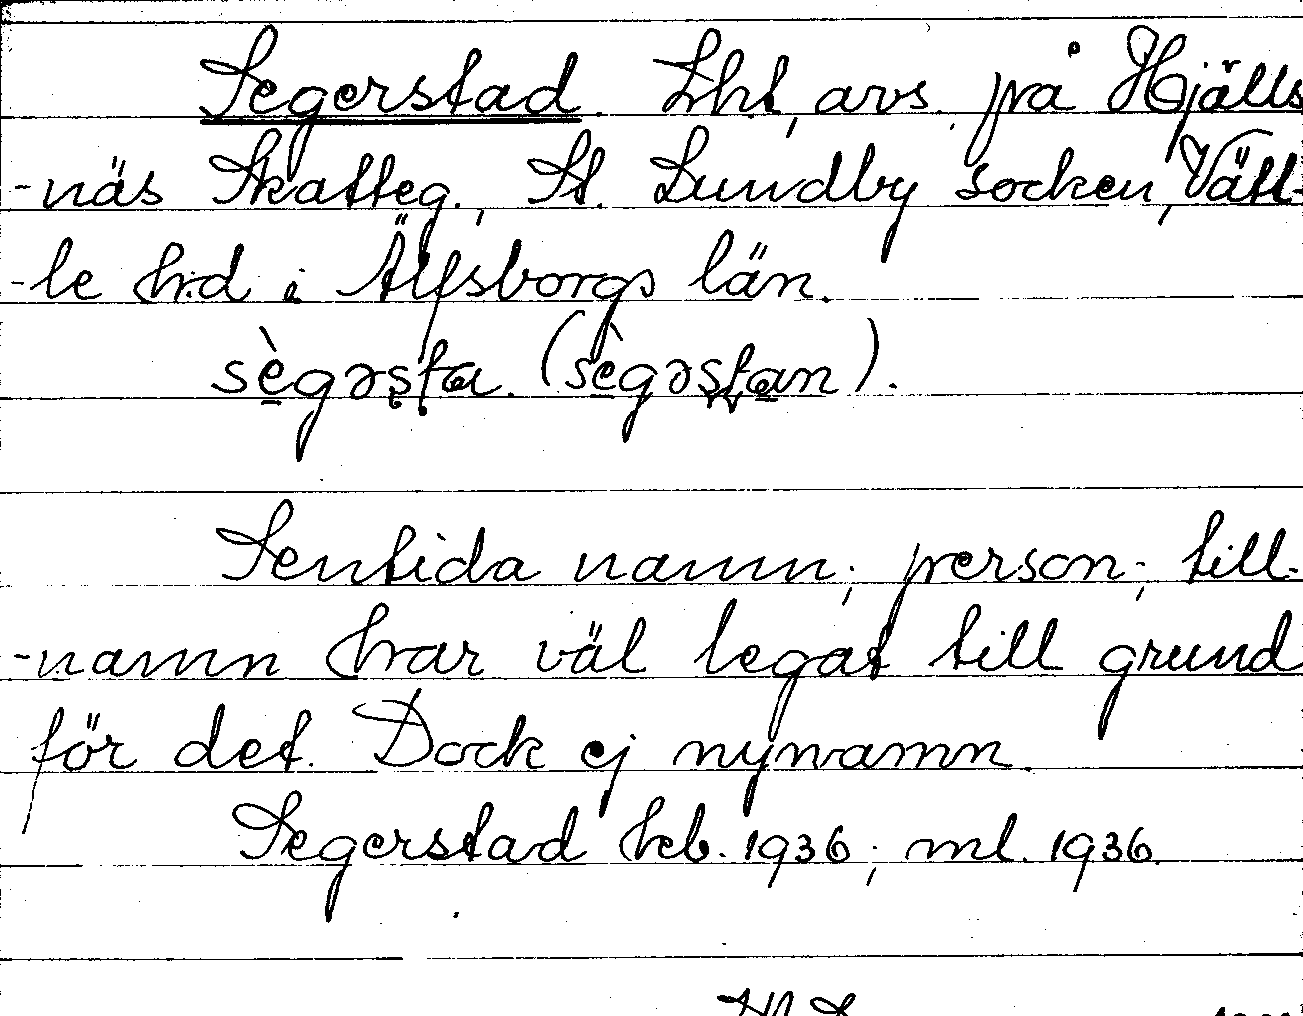 Segerstad. Lht, avs. på Hjälls
-näs Skatteg., St. Lundby socken, Vätt-
-le hrd i Älfsborgs län.
sègəsta. (sègəstan).
Sentida namn; person-, till-
-namn har väl legat till grund
för det. Dock ej nynamn.
Segerstad heb. 1936; ml. 1936.